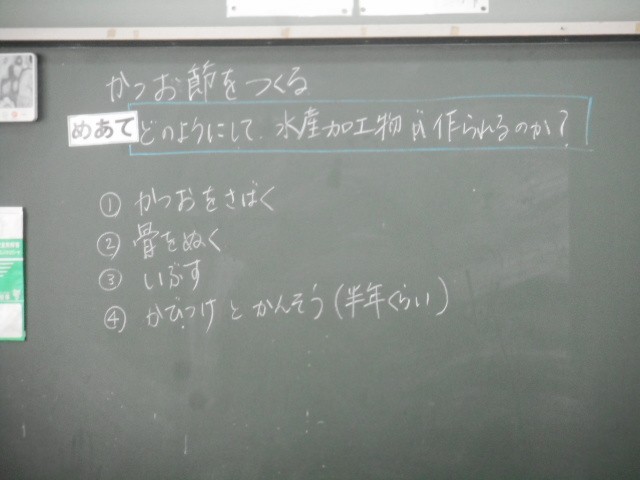 かつお節をつくる
めあて どのようにして、水産加工物が作られるのか？
① かつおをさばく
② 骨をぬく
③ いぶす
④ かびつけとかんそう(半年くらい)